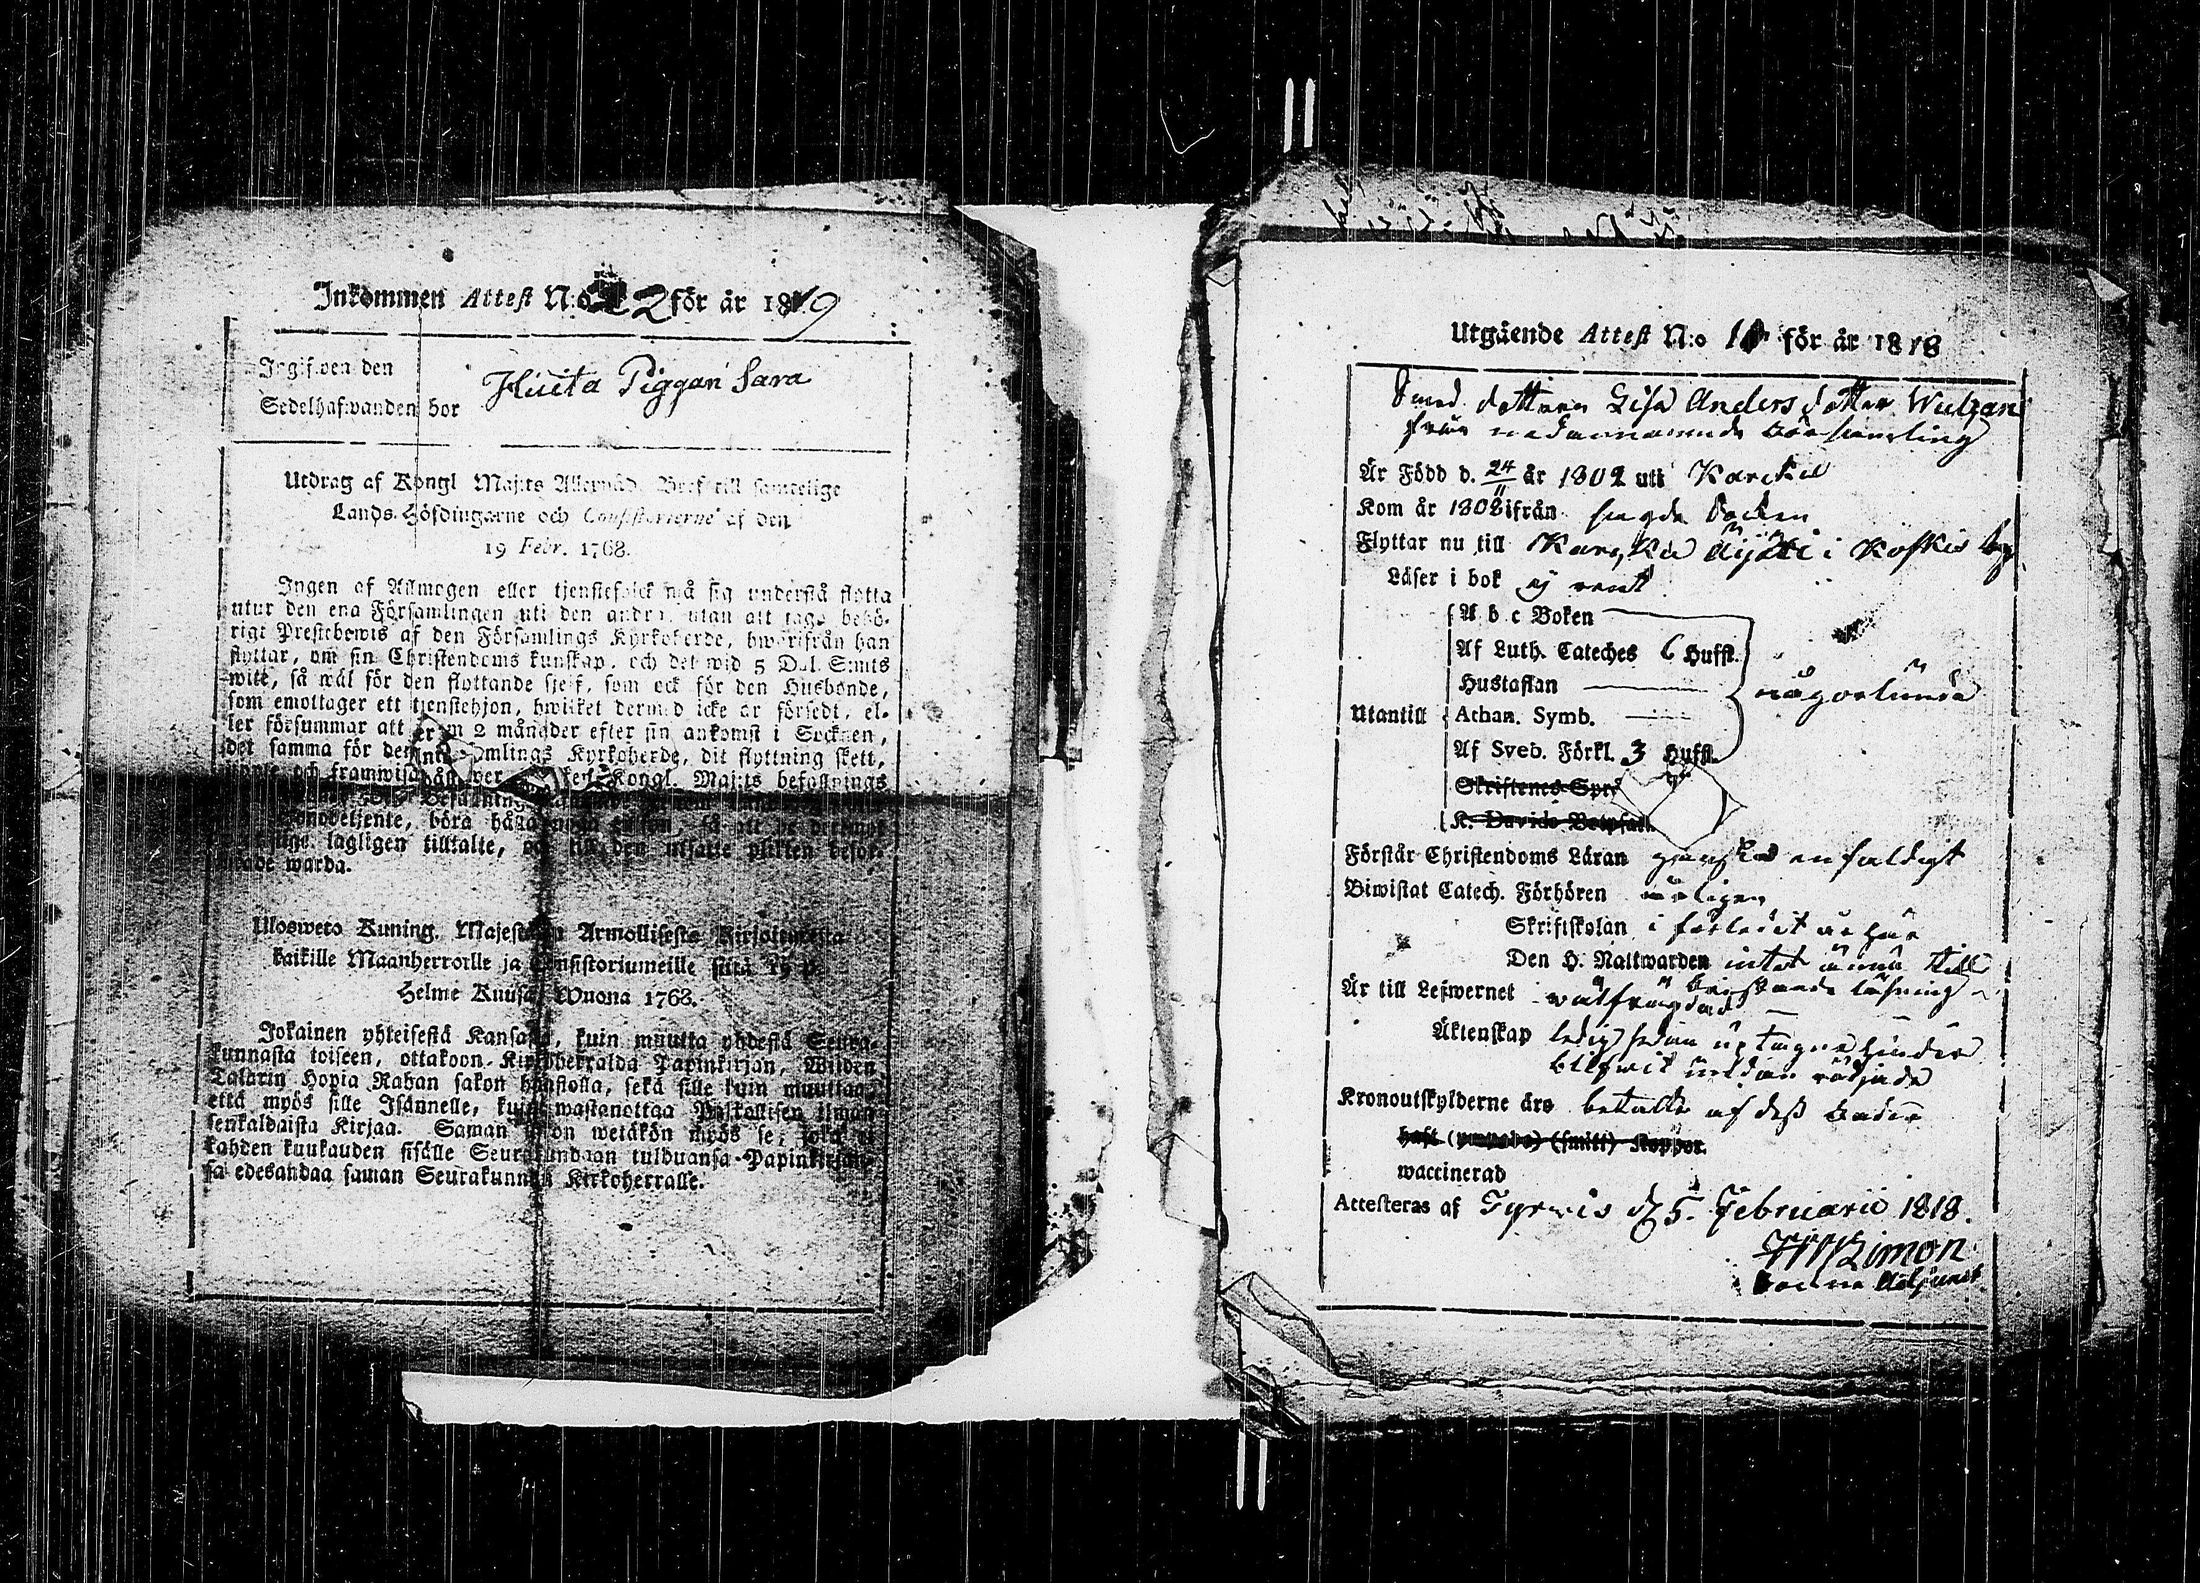 Inkommen Attest N:o 2 för år 1819
Ingifwen den
Sedelhafwanden bor
Huita Piggan Sara
Utdrag af Kongl Maj:ts Allernåd. Bref till samtelige
Lands-Höfdingarne och Consistorierne af den
19 Febr. 1768.
Ingen af Allmogen eller tjenstefolck må sig understå flytta
utur den ena Församlingen uti den andra, utan att taga behö-
rigt Prestebewis af den Församlings Kyrkoherde, hwarifrån han
flyttar, om sin Christendoms kunskap, och det wid 5 Dal. S:mts
wite, så wäl för den flyttande sjelf, som ock för den Husbonde,
som emottager ett tjenstehjon, hwilket dermed icke är försedt, el-
ler försummar att inom 2 månader efter sin ankomst i Socknen,
det samma för den Församlings Kyrkoherde, dit flyttning skett,
och framwisa Kongl. Maj:ts befallnings
böra
lagligen tilltalte, och till den utsatte plikten befor-
drade warda.
Ulosweto Kuning. Majestetin Armollisesta Kirjoituresta
kaikille Maanherroille ja Consistoriumeille siitä 19 p.
Helme Kuusa Wuona 1768.
Jokainen yhteisestä Kansasta, kuin muutta yhdestä Seura-
kunnasta toiseen, ottakoon Kirkoherralda Papinkirjan, Wiiden
Talarin Hopia Rahan sakon haastolla, sekä sille kuin muuttaa,
että myös sille Isännelle, kuin wastanottaa Palkollisen ilman
senkaldaista Kirjaa. Saman on wetäkön myös se, joka ei
kahden kuukauden sisälle Seurakundaan tulduansa Papinkirjaa-
sa edesandaa saman Seurakunnan Kirkoherralle.
Utgående Attest N:o 10 för år 1818
Smed dottren Lisa Anders dotter Wulzan
från nedannämnde Församling
Är Född d. 24/11 år 1802 uti Karcku
Kom år 1808 ifrån sagde Socken
Flyttar nu till Karcku i Koskis by
Läser i bok ej rent
A b c Boken
Af Luth. Cateches 6 Hufst.
Hustaflan
Utantill Athan. Symb.
någorlunda
Af Sveb. Förkl. 3 Hufst.
Skriftenes Spr
K. Davids Botpsal.
Förstår Christendoms Läran ganska enfaldigt
Biwistat Catech. Förhören årligen
Skriftskolan i förledet år här
Den H. Nattwarden intet ännu till
bristande läsning
Är till Lefwernet wälfräydad
Äktenskap ledig sedan
blifwit undan röjade
Kronoutskylderne äro betalte af dess fader
haft (ympade) (smitt) Koppor.
waccinerad
Attesteras af Tyrwis d. 5. Februarii 1818.
Limon
Adjunct